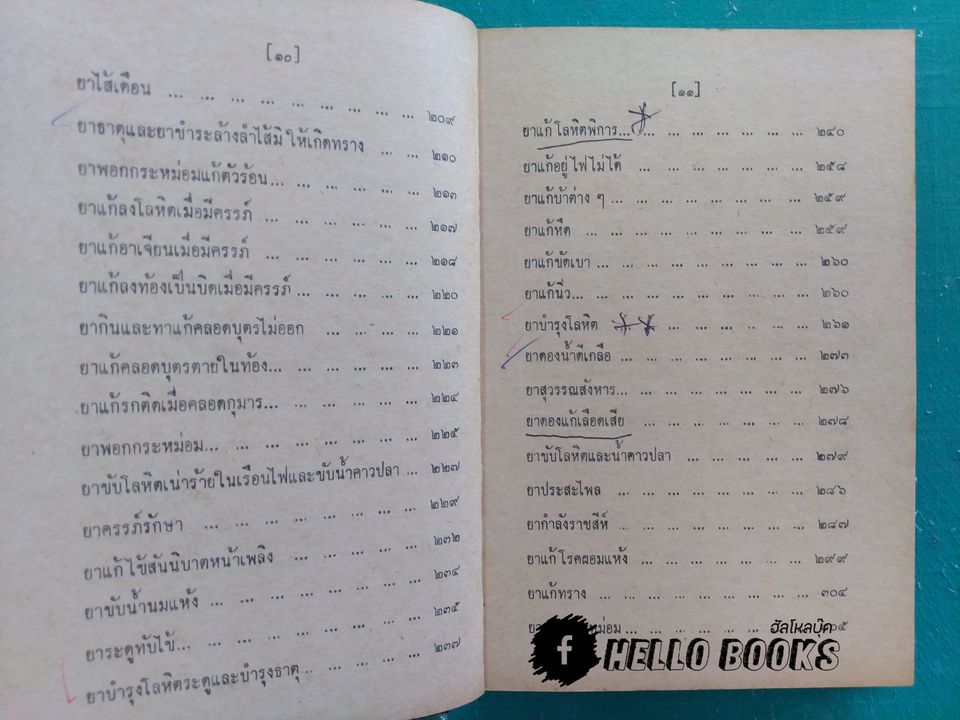 [๑๐]
ยาไส้เดือน ... ... ... ... ... ... ... ... ... ๒๐๙
ยาธาตุและยาชำระล้างลำไส้มิให้เกิดทราง ... ... ๒๑๐
ยาพอกกระหม่อมแก้ตัวร้อน... ... ... ... ... ... ๒๑๓
ยาแก้ลงโลหิตเมื่อมีครรภ์ ... ... ... ... ... ... ๒๑๗
ยาแก้อาเจียนเมื่อมีครรภ์ ... ... ... ... ... ... ๒๑๘
ยาแก้ลงท้องเป็นบิดเมื่อมีครรภ์ ... ... ... ... ... ๒๒๐
ยากินและทาแก้คลอดบุตรไม่ออก ... ... ... ... ๒๒๑
ยาแก้คลอดบุตรตายในท้อง... ... ... ... ... ... ๒๒๓
ยาแก้รกติดเมื่อคลอดกุมาร... ... ... ... ... ... ๒๒๔
ยาพอกกระหม่อม... ... ... ... ... ... ... ... ๒๒๕
ยาขับโลหิตเน่าร้ายในเรือนไฟและขับน้ำคาวปลา ... ๒๒๗
ยาครรภ์รักษา ... ... ... ... ... ... ... ... ๒๒๙
ยาแก้ไข้สันนิบาตหน้าเพลิง ... ... ... ... ... ๒๓๒
ยาขับน้ำนมแห้ง ... ... ... ... ... ... ... ... ๒๓๔
ยาระดูทับไข้... ... ... ... ... ... ... ... ... ๒๓๕
ยาบำรุงโลหิตระดูและบำรุงธาตุ ... ... ... ... ... ๒๓๗
[๑๑]
ยาแก้โลหิตพิการ... ... ... ... ... ... ... ... ๒๔๐
ยาแก้อยู่ไฟไม่ได้ ... ... ... ... ... ... ... ๒๕๘
ยาแก้บ้าต่าง ๆ ... ... ... ... ... ... ... ... ๒๕๙
ยาแก้หืด ... ... ... ... ... ... ... ... ... ๒๕๙
ยาแก้ขัดเบา ... ... ... ... ... ... ... ... ๒๖๐
ยาแก้นิ่ว... ... ... ... ... ... ... ... ... ๒๖๐
ยาบำรุงโลหิต ... ... ... ... ... ... ๒๖๑
ยาดองน้ำดีเกลือ ... ... ... ... ... ... ... ๒๗๓
ยาสุวรรณสังหาร... ... ... ... ... ... ... ... ๒๗๖
ยาดองแก้เลือดเสีย ... ... ... ... ... ... ... ๒๗๘
ยาขับโลหิตและน้ำคาวปลา ... ... ... ... ... ๒๗๙
ยาประสะไพล ... ... ... ... ... ... ... ... ๒๘๖
ยากำลังราชสีห์ ... ... ... ... ... ... ... ๒๘๗
ยาแก้โรคผอมแห้ง ... ... ... ... ... ... ... ๒๙๙
ยาแก้ทราง ... ... ... ... ... ... ... ... ๓๐๔
หม่อม ... ... ... ... ... ... ๐๕
ฮัลโหลบุ๊ค
f HELLO BOOKS